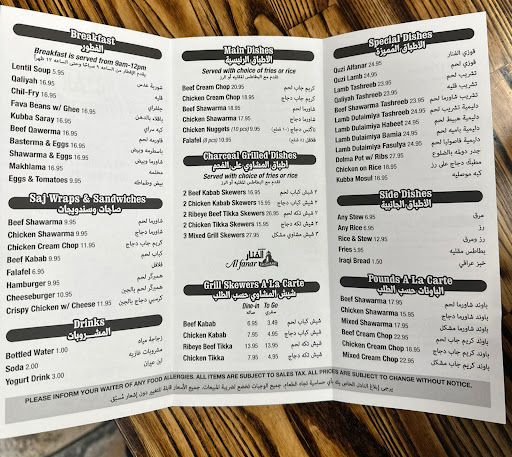 Breakfast
الفطور
Breakfast is served from 9am-12pm
يقدم الإفطار من الساعة ٩ صباحًا وحتى الساعة ١٢ ظهرًا
Lentil Soup 5.95 شوربة عدس
Qaliyah 16.95 قليه
Chil-Fry 16.95 جلفراي
Fava Beans w/ Ghee 16.95 باقلاء بالدهن
Kubba Saray 16.95 كبه سراي
Beef Qawerma 16.95 قاورمه لحم
Basterma & Eggs 16.95 باسطرمه وبيض
Shawarma & Eggs 16.95 شاورما وبيض
Makhlama 16.95 مخلمه
Eggs & Tomatoes 9.95 بيض وطماطه
Saj Wraps & Sandwiches
صاجات وسندويجات
Beef Shawarma 9.95 شاورما لحم
Chicken Shawarma 9.95 شاورما دجاج
Chicken Cream Chop 11.95 كريم جاب دجاج
Beef Kabab 9.95 كباب لحم
Falafel 6.95 فلافل
Hamburger 9.95 همبرگر لحم
Cheeseburger 10.95 همبرگر لحم بالجبن
Crispy Chicken w/ Cheese 11.95 كرسبي دجاج بالجبن
Drinks
المشروبات
Bottled Water 1.00 زجاجة مياه
Soda 2.00 مشروبات غازيه
Yogurt Drink 3.00
Main Dishes
الأطباق الرئيسية
Served with choice of fries or rice
تقدم مع البطاطس المقلية أو الرز
Beef Cream Chop 20.95 كريم جاب لحم
Chicken Cream Chop 19.95 كريم جاب دجاج
Beef Shawarma 18.95 شاورما لحم
Chicken Shawarma 17.95 شاورما دجاج
Chicken Nuggets (10 pcs) 9.95
Falafel (8 pcs) 14.95
Charcoal Grilled Dishes
أطباق المشاوي على الفحم
Served with choice of fries or rice
تقدم مع البطاطس المقلية أو الرز
2 Beef Kabab Skewers 16.95 ٢ شيش كباب لحم
2 Chicken Kabab Skewers 15.95 ٢ شيش كباب دجاج
2 Ribeye Beef Tikka Skewers 20.95 ٢ شيش تكه لحم
2 Chicken Tikka Skewers 15.95 ٢ شيش تكه دجاج
3 Mixed Grill Skewers 27.95 ٣ شيش مشاوي مشكل
الفنار
Al fanar
Grill Skewers A La Carte
شيش المشاوي حسب الطلب
Dine-in To Go
Beef Kabab 6.95 3.49 شيش كباب لحم
Chicken Kabab 7.95 4.95 شيش كباب دجاج
Ribeye Beef Tikka 13.95 6.95 شيش تكه لحم
Chicken Tikka 7.95 4.95 شيش تكه دجاج
Special Dishes
الأطباق المميزة
Quzi Alfanar 24.95 قوزي الفنار
Quzi Lamb 24.95 قوزي لحم
Lamb Tashreeb 24.95 تشريب لحم
Qaliyah Tashreeb 23.95 تشريب قليه
Beef Shawarma Tashreeb 23.95 تشريب شاورما لحم
Lamb Dulaimiya Tashreeb 25.95
Lamb Dulaimiya Habeet 24.95
Lamb Dulaimiya Bamia 24.95
Lamb Dulaimiya Fasulya 24.95
Dolma Pot w/ Ribs 27.95
Chicken on Rice 18.95
Kubba Mosul 16.95 كبه موصليه
Side Dishes
الأطباق الجانبية
Any Stew 6.95 مرق
Any Rice 6.95 رز
Rice & Stew 12.95 رز ومرق
Fries 5.95 بطاطس مقليه
Iraqi Bread 1.50 خبز عراقي
Pounds A La Carte
الباونات حسب الطلب
Beef Shawarma 17.95 باوند شاورما لحم
Chicken Shawarma 16.95 باوند شاورما دجاج
Mixed Shawarma 17.95 باوند شاورما مشكل
Beef Cream Chop 23.95 باوند كريم جاب لحم
Chicken Cream Chop 18.95 باوند كريم جاب دجاج
Mixed Cream Chop 22.95 باوند كريم جاب مشكل
PLEASE INFORM YOUR WAITER OF ANY FOOD ALLERGIES. ALL ITEMS ARE SUBJECT TO SALES TAX. ALL PRICES ARE SUBJECT TO CHANGE WITHOUT NOTICE.
يرجى إبلاغ النادل الخاص بك بأي حساسية تجاه الطعام. جميع الوجبات تخضع لضريبة المبيعات. جميع الأسعار قابلة للتغيير دون إشعار مُسبَق.